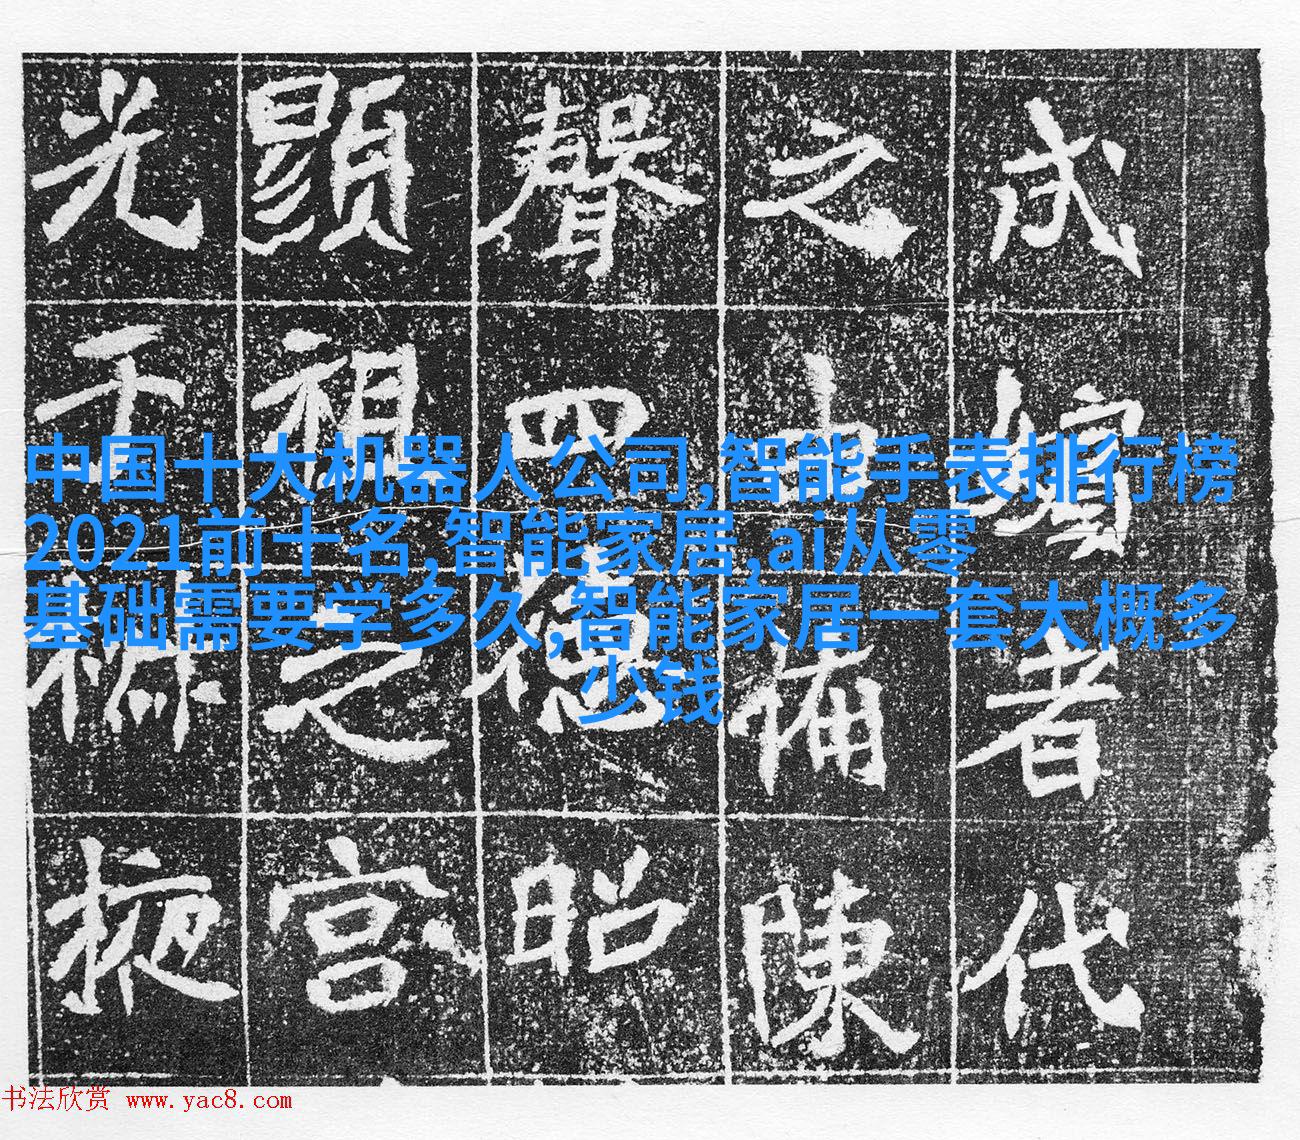 式嬪者代
之備陳
聲四德昭
顯祖之宮
光于掖
中国十大机器人公司,智能手表排行榜
2021前十名,智能家居,ai从零
基础需要学多久,智能家居一套大概多
少钱
书法欣赏 www.yac8.com